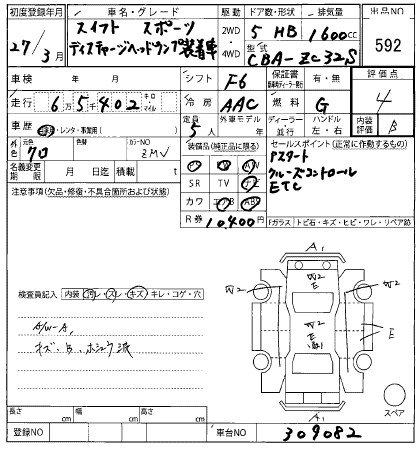 初度登録年月
車名・グレード
駆動
ドア数・形状
排気量
出品NO
27/3月
スイフト スポーツ
ディスチャージヘッドランプ装着車
2WD
4WD
5 HB
1600cc
型式
CBA-ZC32S
592
車検
年 月
シフト
F6
保証書
有・無
評価点
4
走行
6万5402
キロ
マイル
冷房
AAC
燃料
G
車歴
・レンタ・事業用( )
定員
5人
外車モデル
年
ディーラー
並行
ハンドル
左・右
内装
評価
B
外色
元色
色替
カラーNO
クロ
ZMV
装備品(純正品に限る)
セールスポイント(正常に作動するもの)
Pスタート
クルーズコントロール
ETC
名義変更
期限
月 日迄
積載
t
SR
TV
ナビ
カワ
エアB
ABS
R券
10,400円
注意事項(欠品・修復・不具合箇所および状態)
Fガラス
トビ石・キズ・ヒビ・ワレ・リペア跡
検査員記入
内装
汚レ・スレ・キズ・キレ・コゲ・穴
A/W-A,
キズ、B、ホシュウ済
A1
W2
E
W2
W2
W2
E
E
A1
スペア
長さ
cm
幅
cm
高さ
cm
登録NO
車台NO
309082